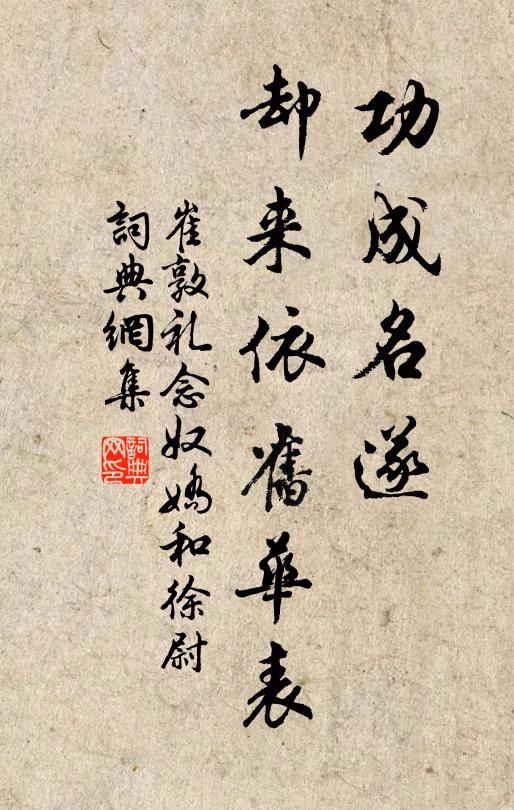 功成名遂
却来依舊華表
崔敦礼念奴嬌和徐尉
詞典網集
詞典网印